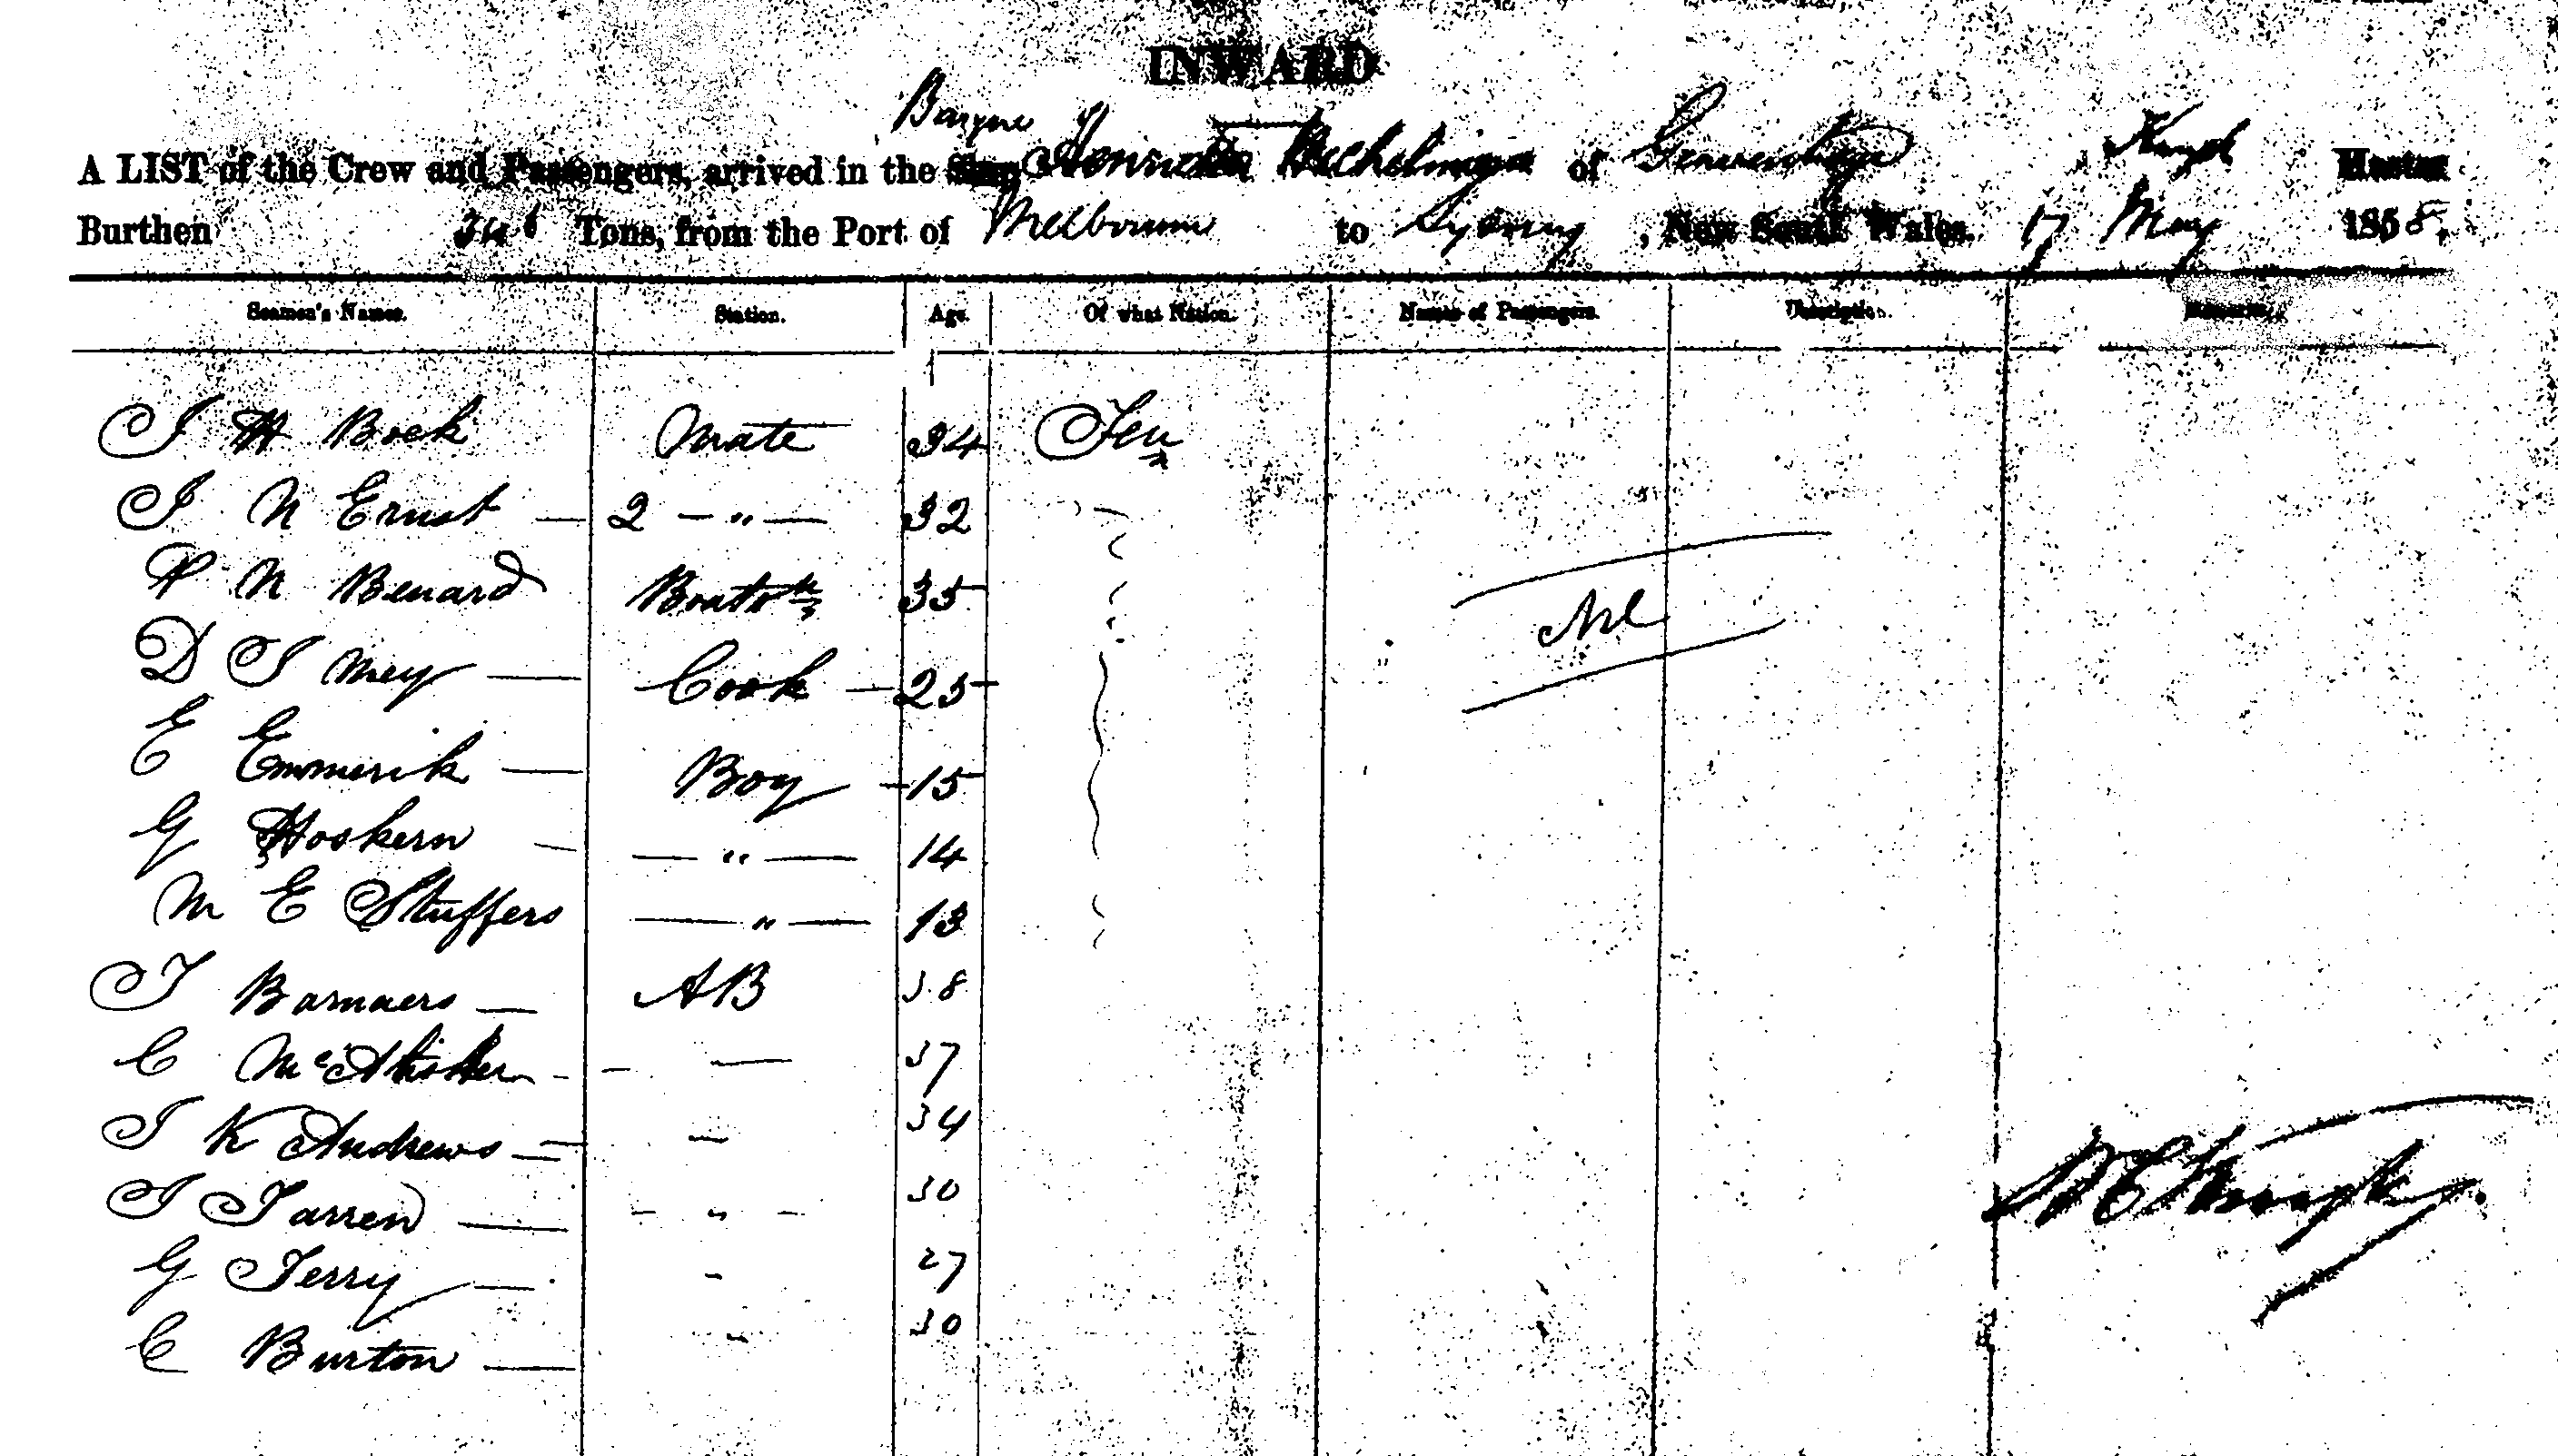 INWARD
Barque
A LIST of the Crew and Passengers, arrived in the Ship Henrietta of Master
Burthen 346 Tons, from the Port of Melbourne to Sydney, New South Wales. 17 May 1858.
Seamen's Names. Station. Age. Of what Nation. Names of Passengers. Description. Remarks.
J H Bock Mate 34
J N Ernst — 2 — " — 32
P N Benard Boatsn 35
D J Mey — Cook — 25
E Emmerik — Boy — 15
G Hoskern — — " — 14
M E Stuffers — " — 13
Nil
J Barnaers — AB 38
C — — 37
J K Andrews — — 34
J Tarren — - " - 30
G Terry — - 27
C Burton — - 30